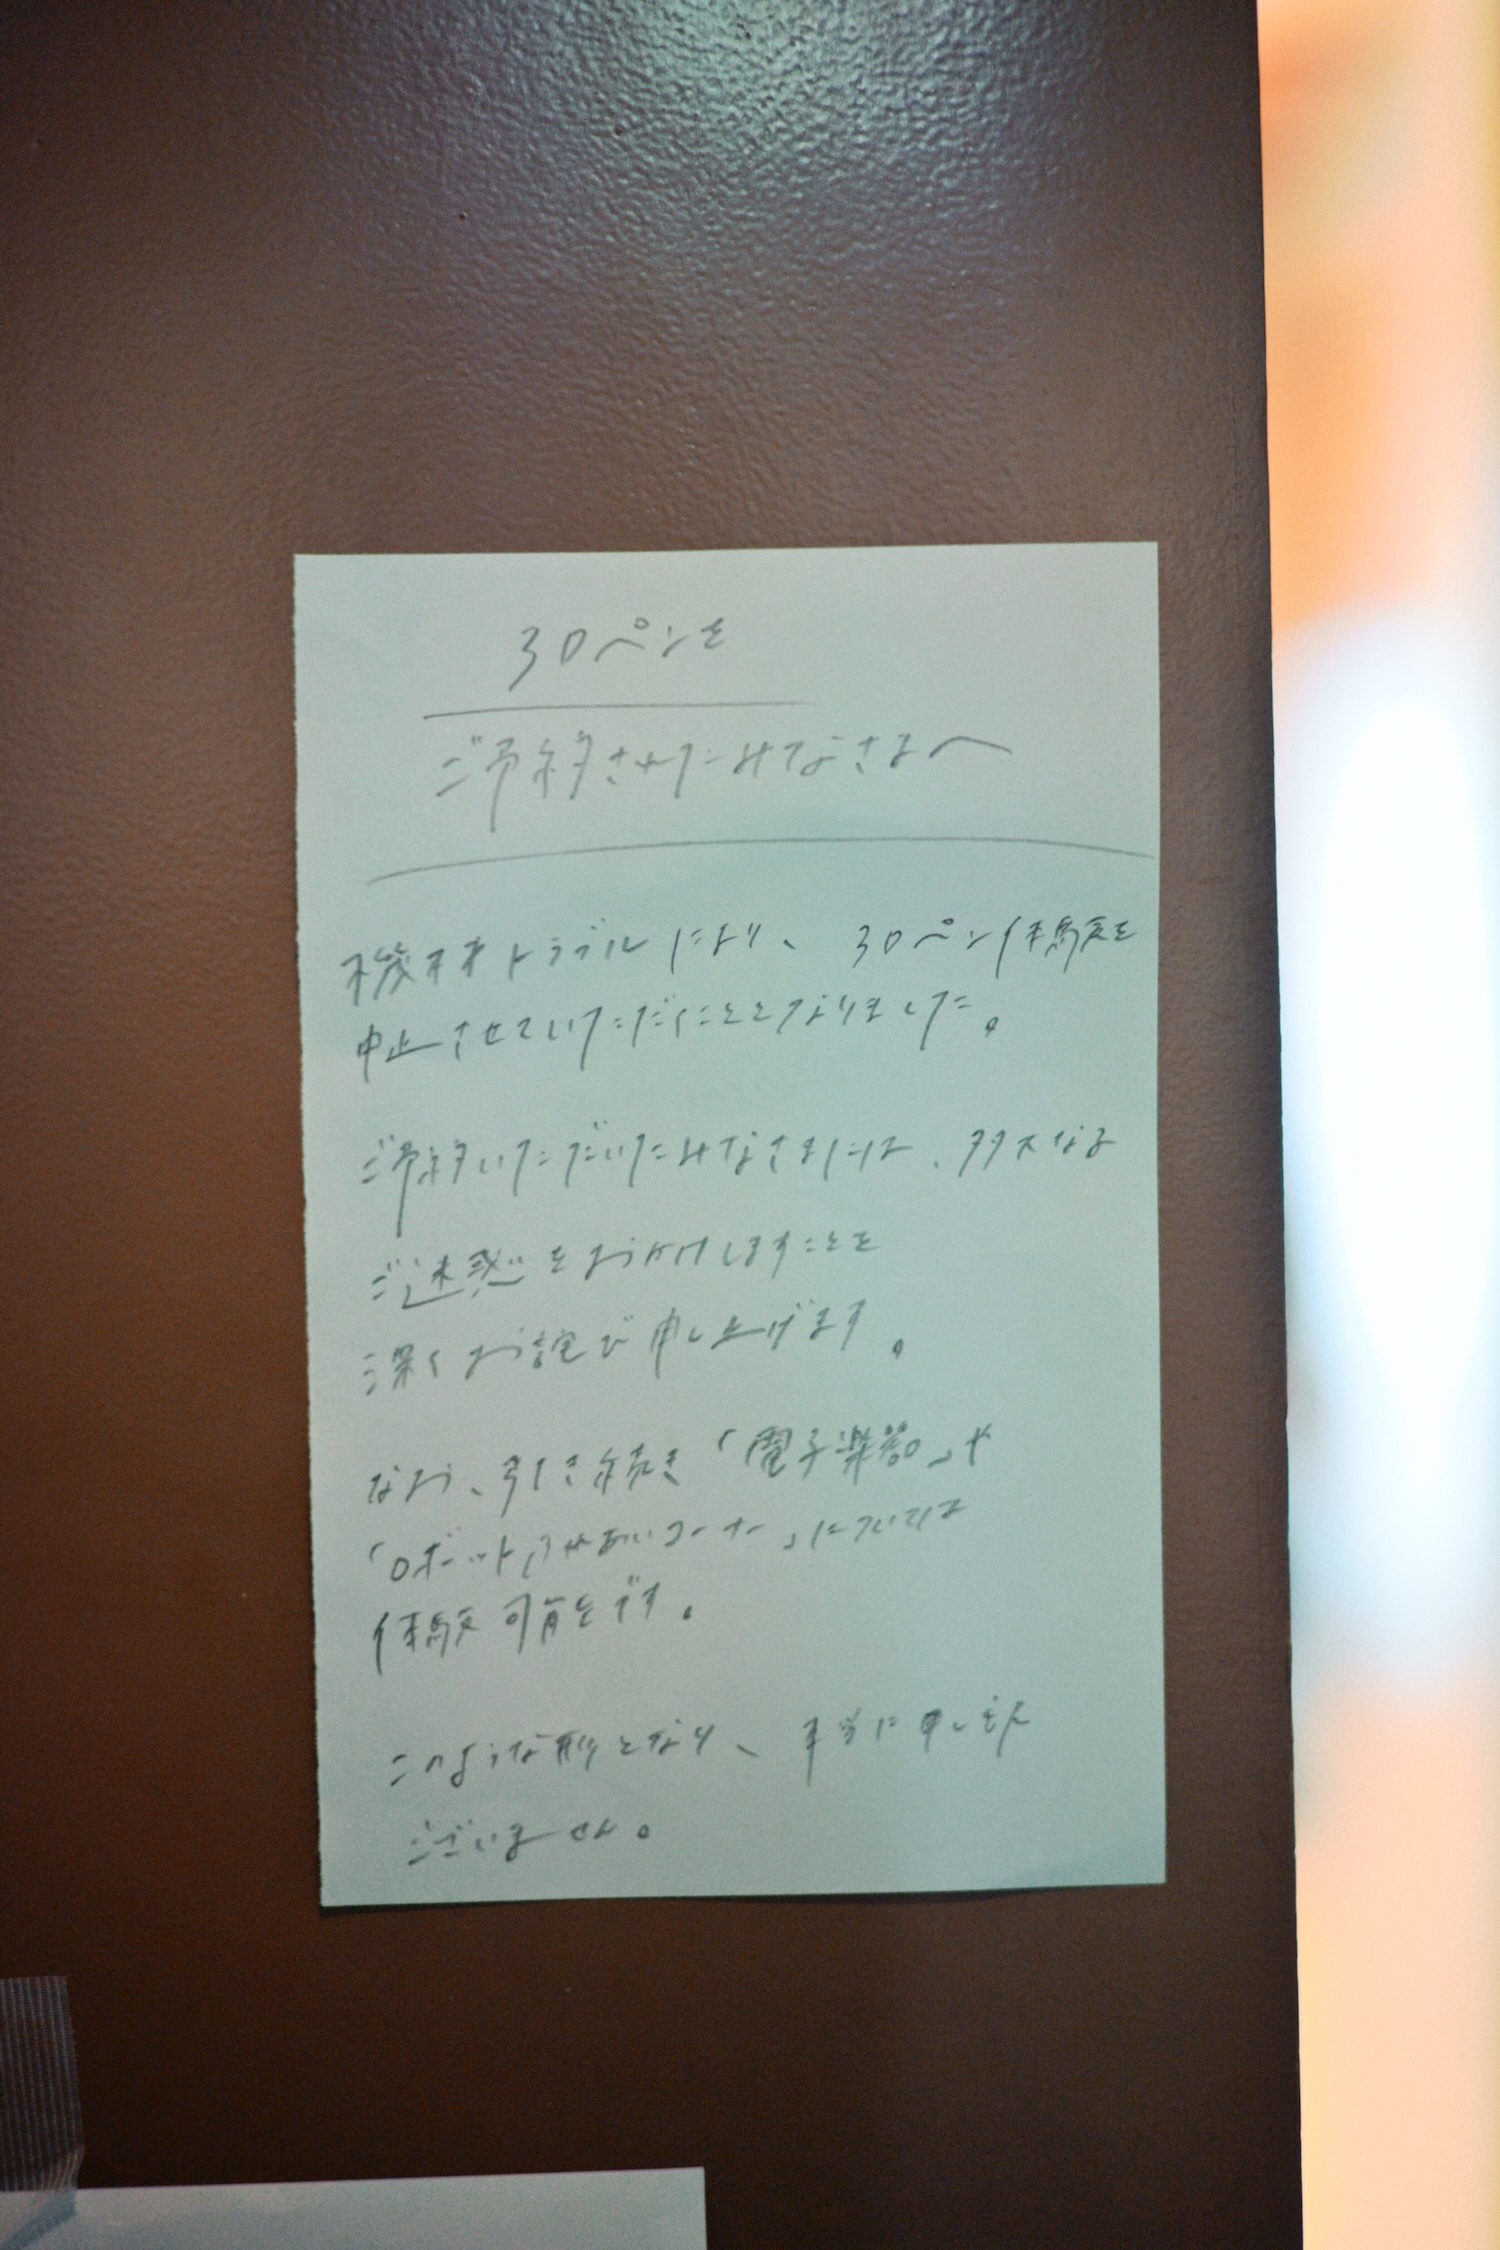 3Dペンを
ご予約されたみなさまへ
機材トラブルにより、3Dペン体験を
中止させていただくこととなりました。
ご予約いただいたみなさまには、多大なる
ご迷惑をおかけしますことを
深くお詫び申し上げます。
なお、引き続き「電子楽器」や
「ロボットふれあいコーナー」については
体験可能です。
このような形となり、本当に申し訳
ございません。